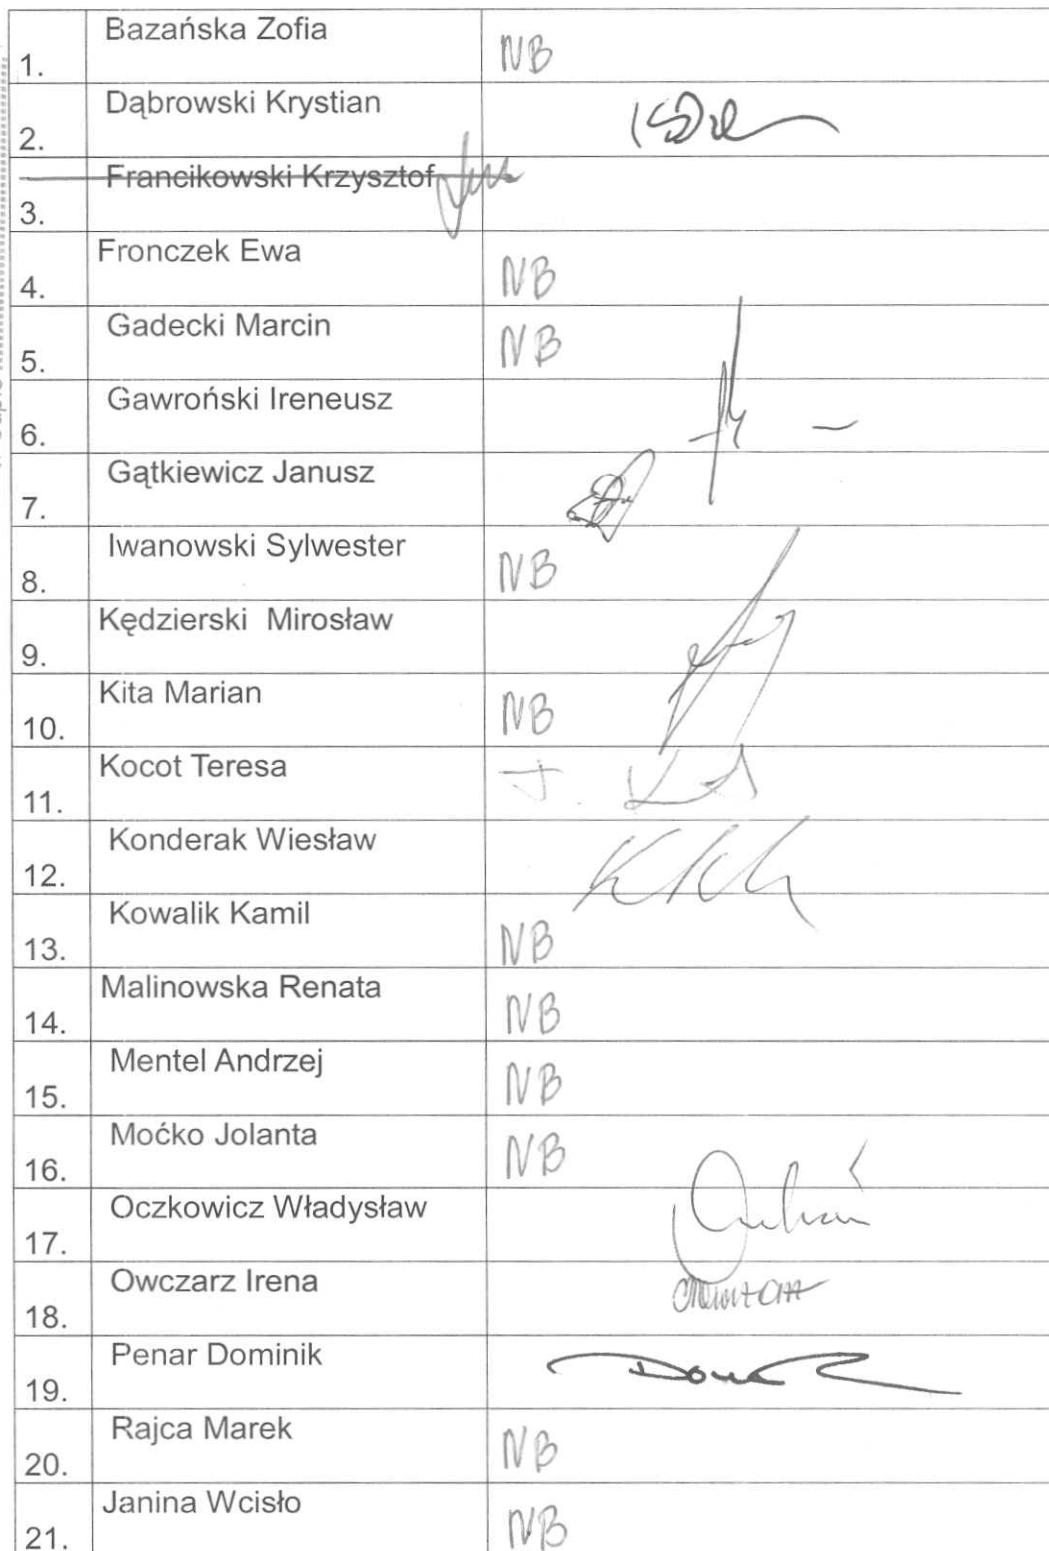 1. Bazańska Zofia NB
2. Dąbrowski Krystian
3. Francikowski Krzysztof
4. Fronczek Ewa NB
5. Gadecki Marcin NB
6. Gawroński Ireneusz
7. Gątkiewicz Janusz
8. Iwanowski Sylwester NB
9. Kędzierski Mirosław
10. Kita Marian NB
11. Kocot Teresa
12. Konderak Wiesław
13. Kowalik Kamil NB
14. Malinowska Renata NB
15. Mentel Andrzej NB
16. Moćko Jolanta NB
17. Oczkowicz Władysław
18. Owczarz Irena
19. Penar Dominik
20. Rajca Marek NB
21. Janina Wcisło NB